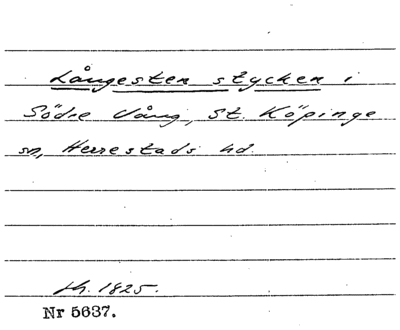 Långesten stycken i
Södre Vång, St. Köpinge
sn, Herrestads hd.
1825.
Nr 5637.